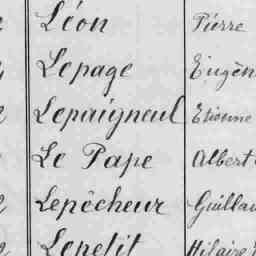 Léon Pierre
Lepage Eugèn
Lepaigneul Etienne
Le Pape Albert
Lepêcheur Guillau
Lepetit Hilaire